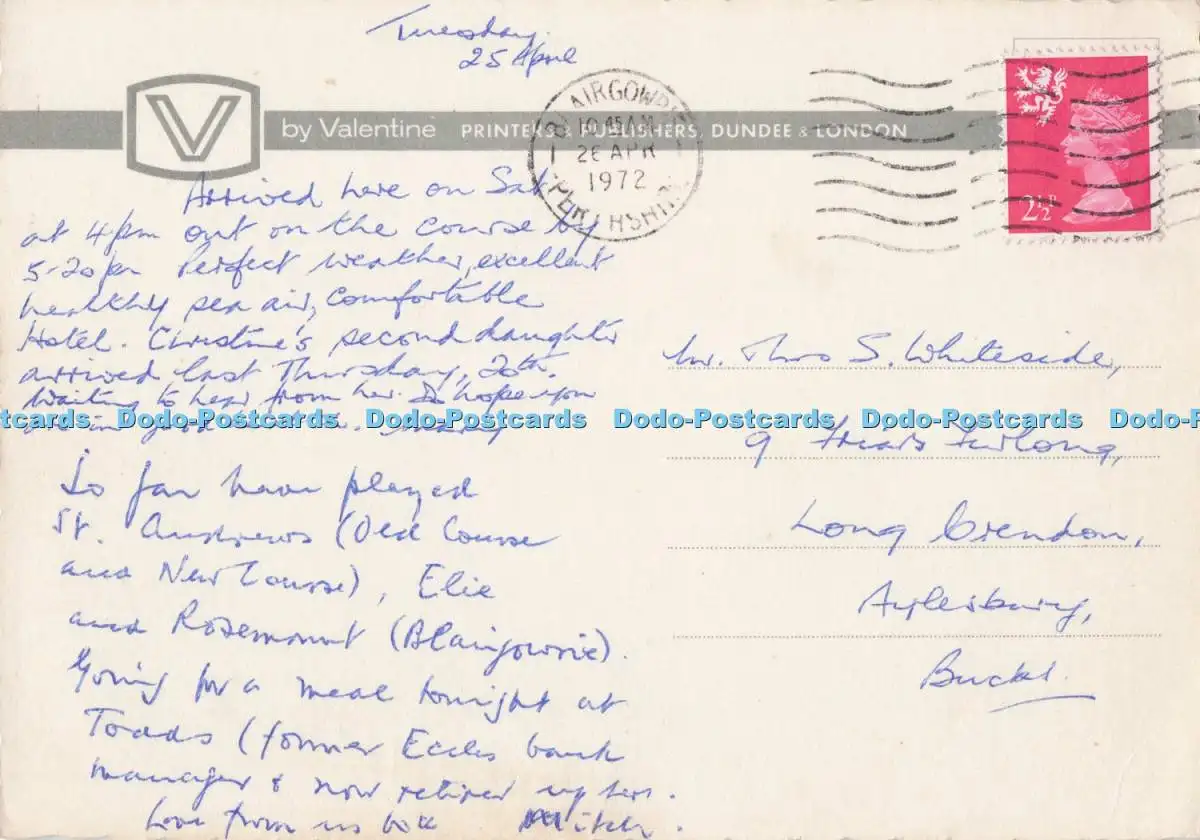 Tuesday.
25 April
V
by Valentine PRINTERS & PUBLISHERS, DUNDEE & LONDON
BLAIRGOWRIE
10 45 AM
26 APR
1972
PERTHSHIRE
2½P
Arrived here on Sat.
at 4pm out on the course by
5-20pm Perfect weather, excellent
healthy sea air, comfortable
Hotel. Christine's second daughter
arrived last Thursday, 20th.
Waiting to hear from her. Do hope you
are in good
Dodo-Postcards Dodo-Postcards Dodo-Postcards Dodo-Postcards Dodo-Postcards
So far have played
St. Andrews (Old Course
and New Course), Elie
and Rosemount (Blairgowrie).
Going for a meal tonight at
Todds (former Eccles bank
manager & now retired up here.
Love from us both Mitch.
Mr. Thos S. Whiteside,
9 Friars Furlong,
Long Crendon,
Aylesbury,
Bucks.